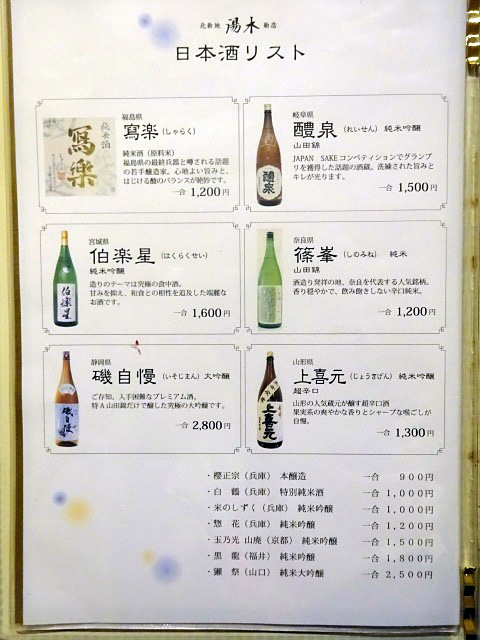 北新地 湯木 新店
日本酒リスト
福島県
寫楽 (しゃらく)
純米酒 (原料米)
福島県の最終兵器と噂される話題
の若手醸造家。心地よい旨みと、
はじける酸のバランスが絶妙です。
一合 1,200円
純米酒
寫楽
岐阜県
醴泉 (れいせん) 純米吟醸
山田錦
JAPAN SAKE コンペティションでグランプ
リを獲得した話題の酒蔵。洗練された旨みと
キレが光ります。
一合 1,500円
醴泉
宮城県
伯楽星 (はくらくせい)
純米吟醸
造りのテーマは究極の食中酒。
甘みを抑え、和食との相性を追及した端麗な
お酒です。
一合 1,600円
伯楽星
奈良県
篠峯 (しのみね) 純米
山田錦
酒造り発祥の地、奈良を代表する人気銘柄。
香り穏やかで、飲み飽きしない辛口純米。
一合 1,200円
静岡県
磯自慢 (いそじまん) 大吟醸
ご存知、入手困難なプレミアム酒。
特A山田錦だけで醸した究極の大吟醸です。
一合 2,800円
磯自慢
山形県
上喜元 (じょうきげん) 純米吟醸
超辛口
山形の人気蔵元が醸す超辛口酒
果実系の爽やかな香りとシャープな喉ごしが
自慢。
一合 1,300円
上喜元
・櫻正宗 (兵庫) 本醸造 一合 900円
・白 鶴 (兵庫) 特別純米酒 一合 1,000円
・米のしずく (兵庫) 純米吟醸 一合 1,000円
・惣 花 (兵庫) 純米吟醸 一合 1,200円
・玉乃光 山廃 (京都) 純米吟醸 一合 1,500円
・黒 龍 (福井) 純米吟醸 一合 1,800円
・獺 祭 (山口) 純米大吟醸 一合 2,500円